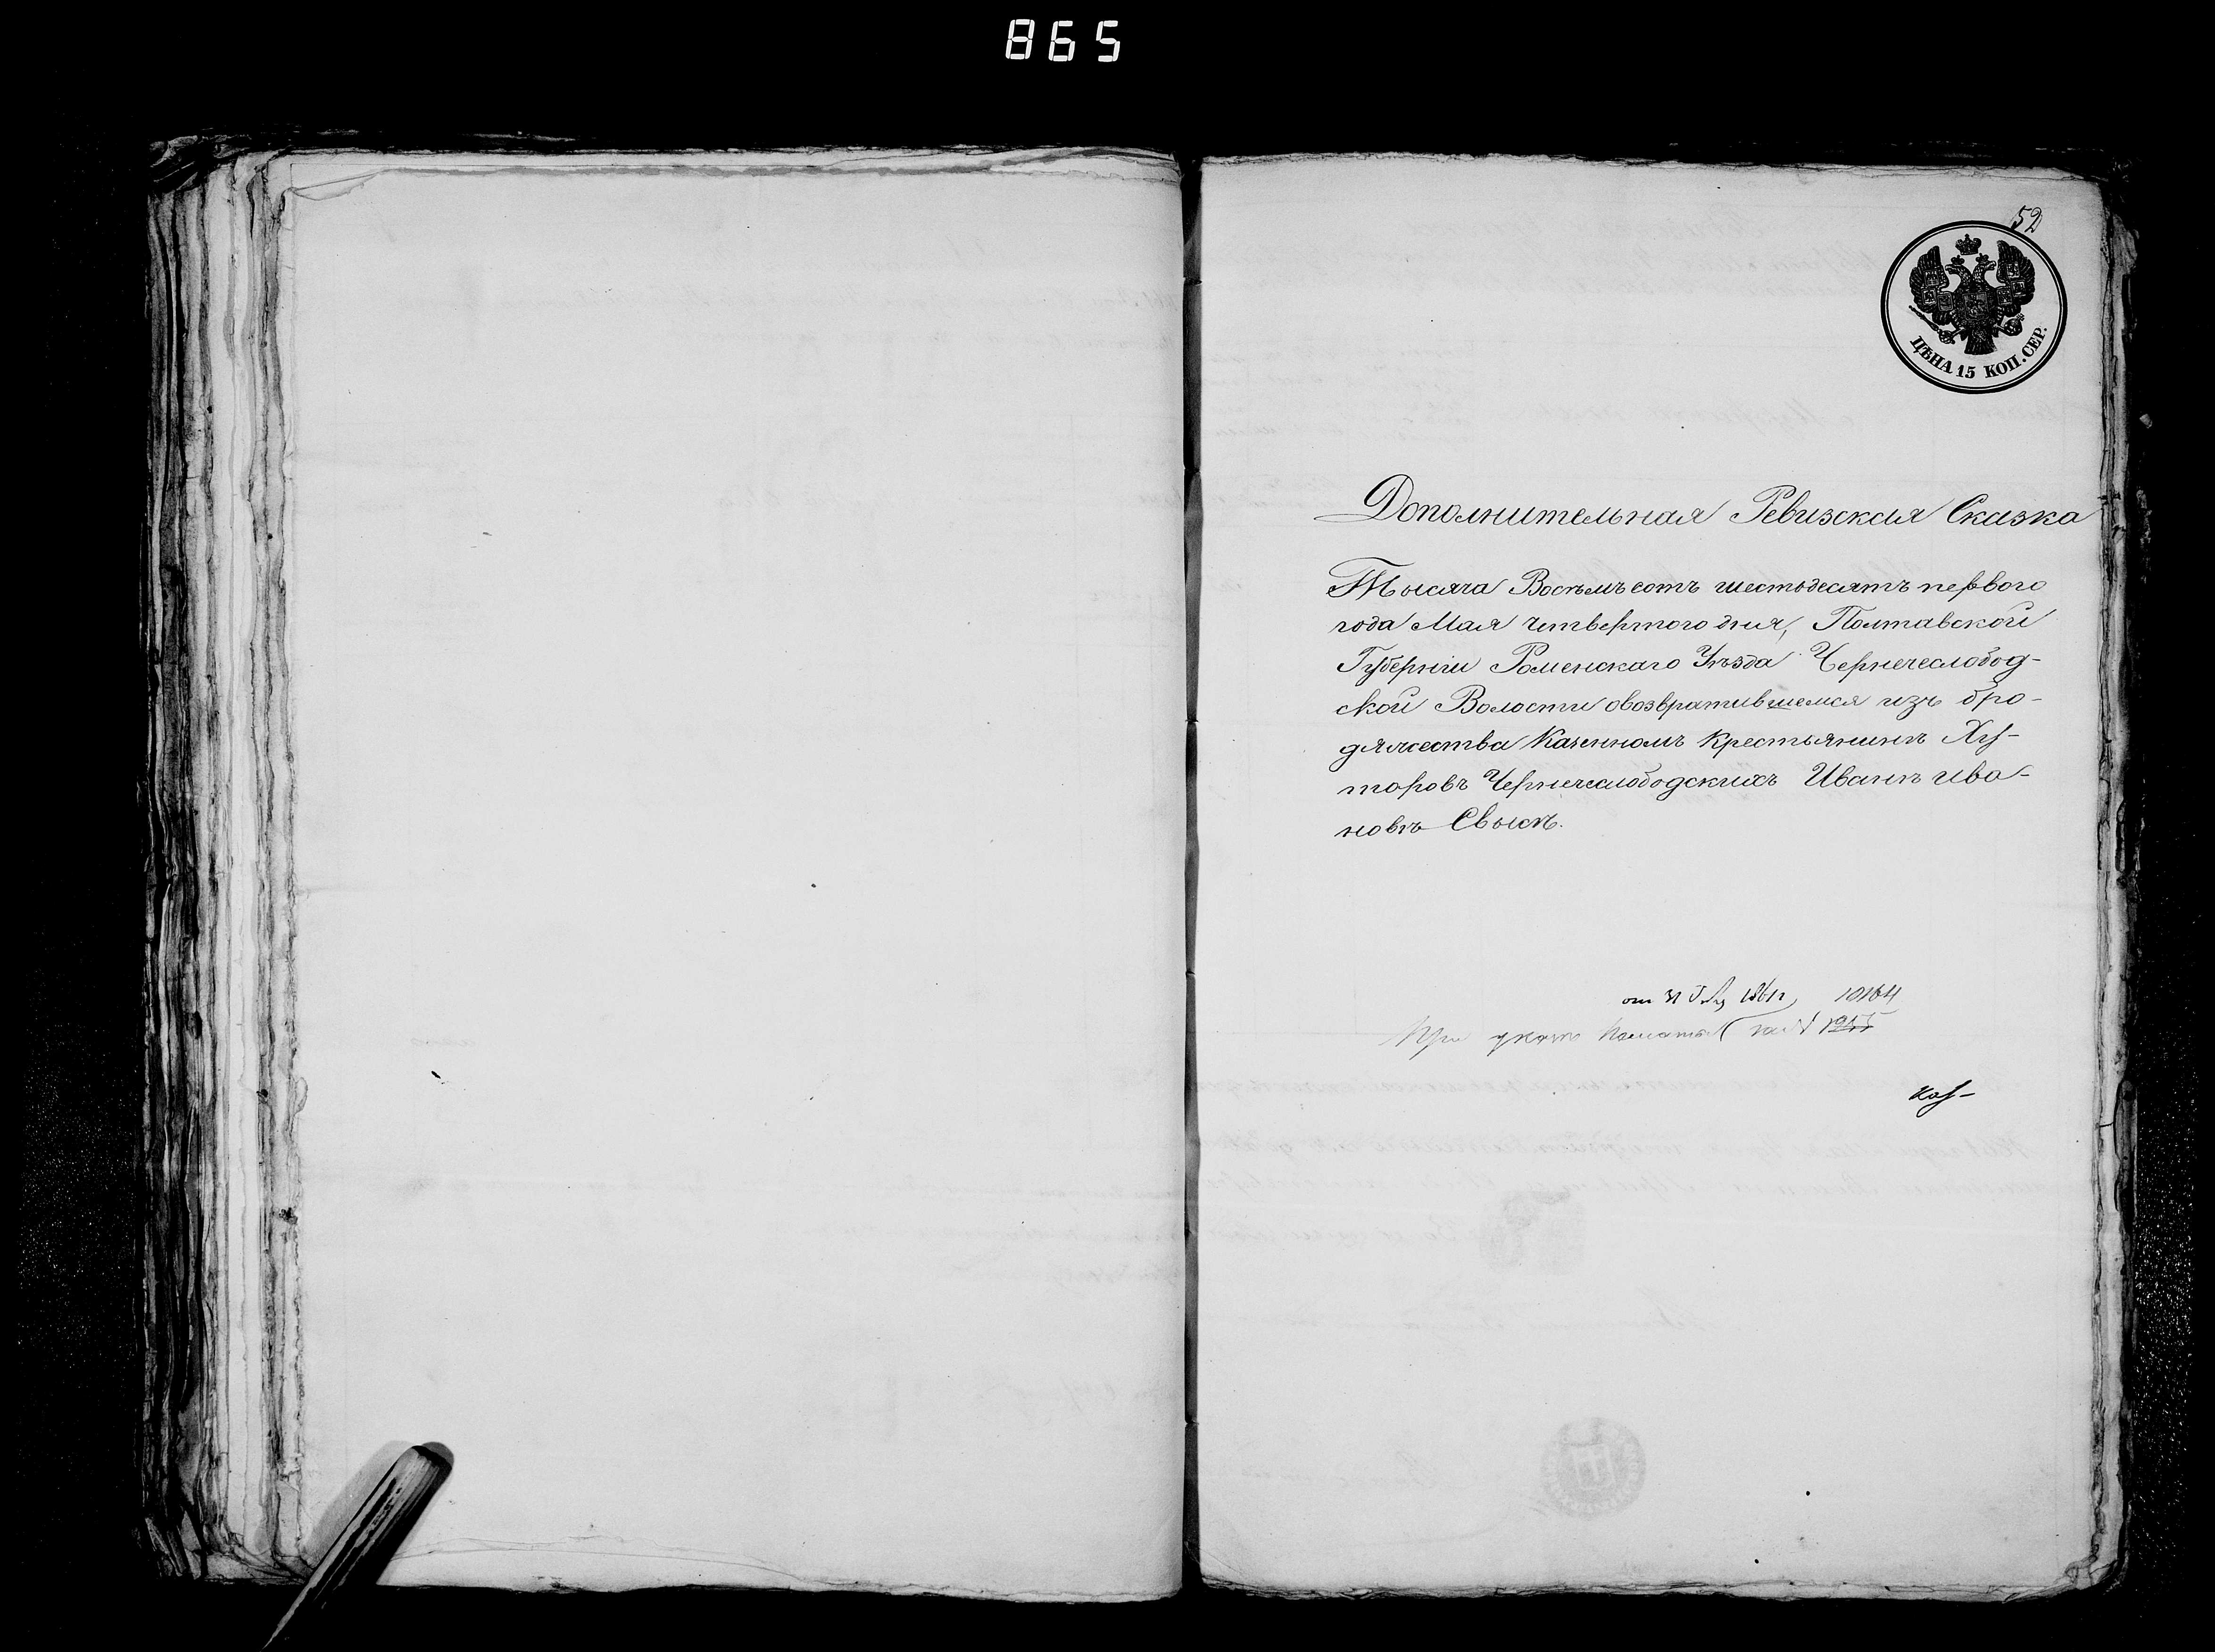 865
52
ЦѢНА 15 КОП. СЕР.
Дополнительная Ревизская Сказка
Тысяча Восемьсотъ шестьдесятъ первого
года Мая четвертого дня, Полтавской
Губерніи Роменскаго Уѣзда Чернечеслобод-
ской Волости овозвратившемся изъ бро-
дяжества Казенномъ Крестьянинѣ Ху-
торовъ Чернечеслободскихъ Иванѣ ива-
новѣ Свысѣ.
от 31 1861 10164
При указѣ Палаты за №